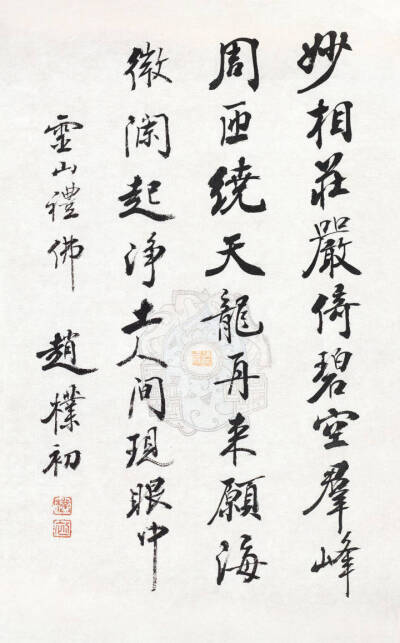 妙相莊嚴倚碧空羣峰
周匝繞天龍再来願海
微瀾起淨土人间現眼中
靈山禮佛 趙樸初